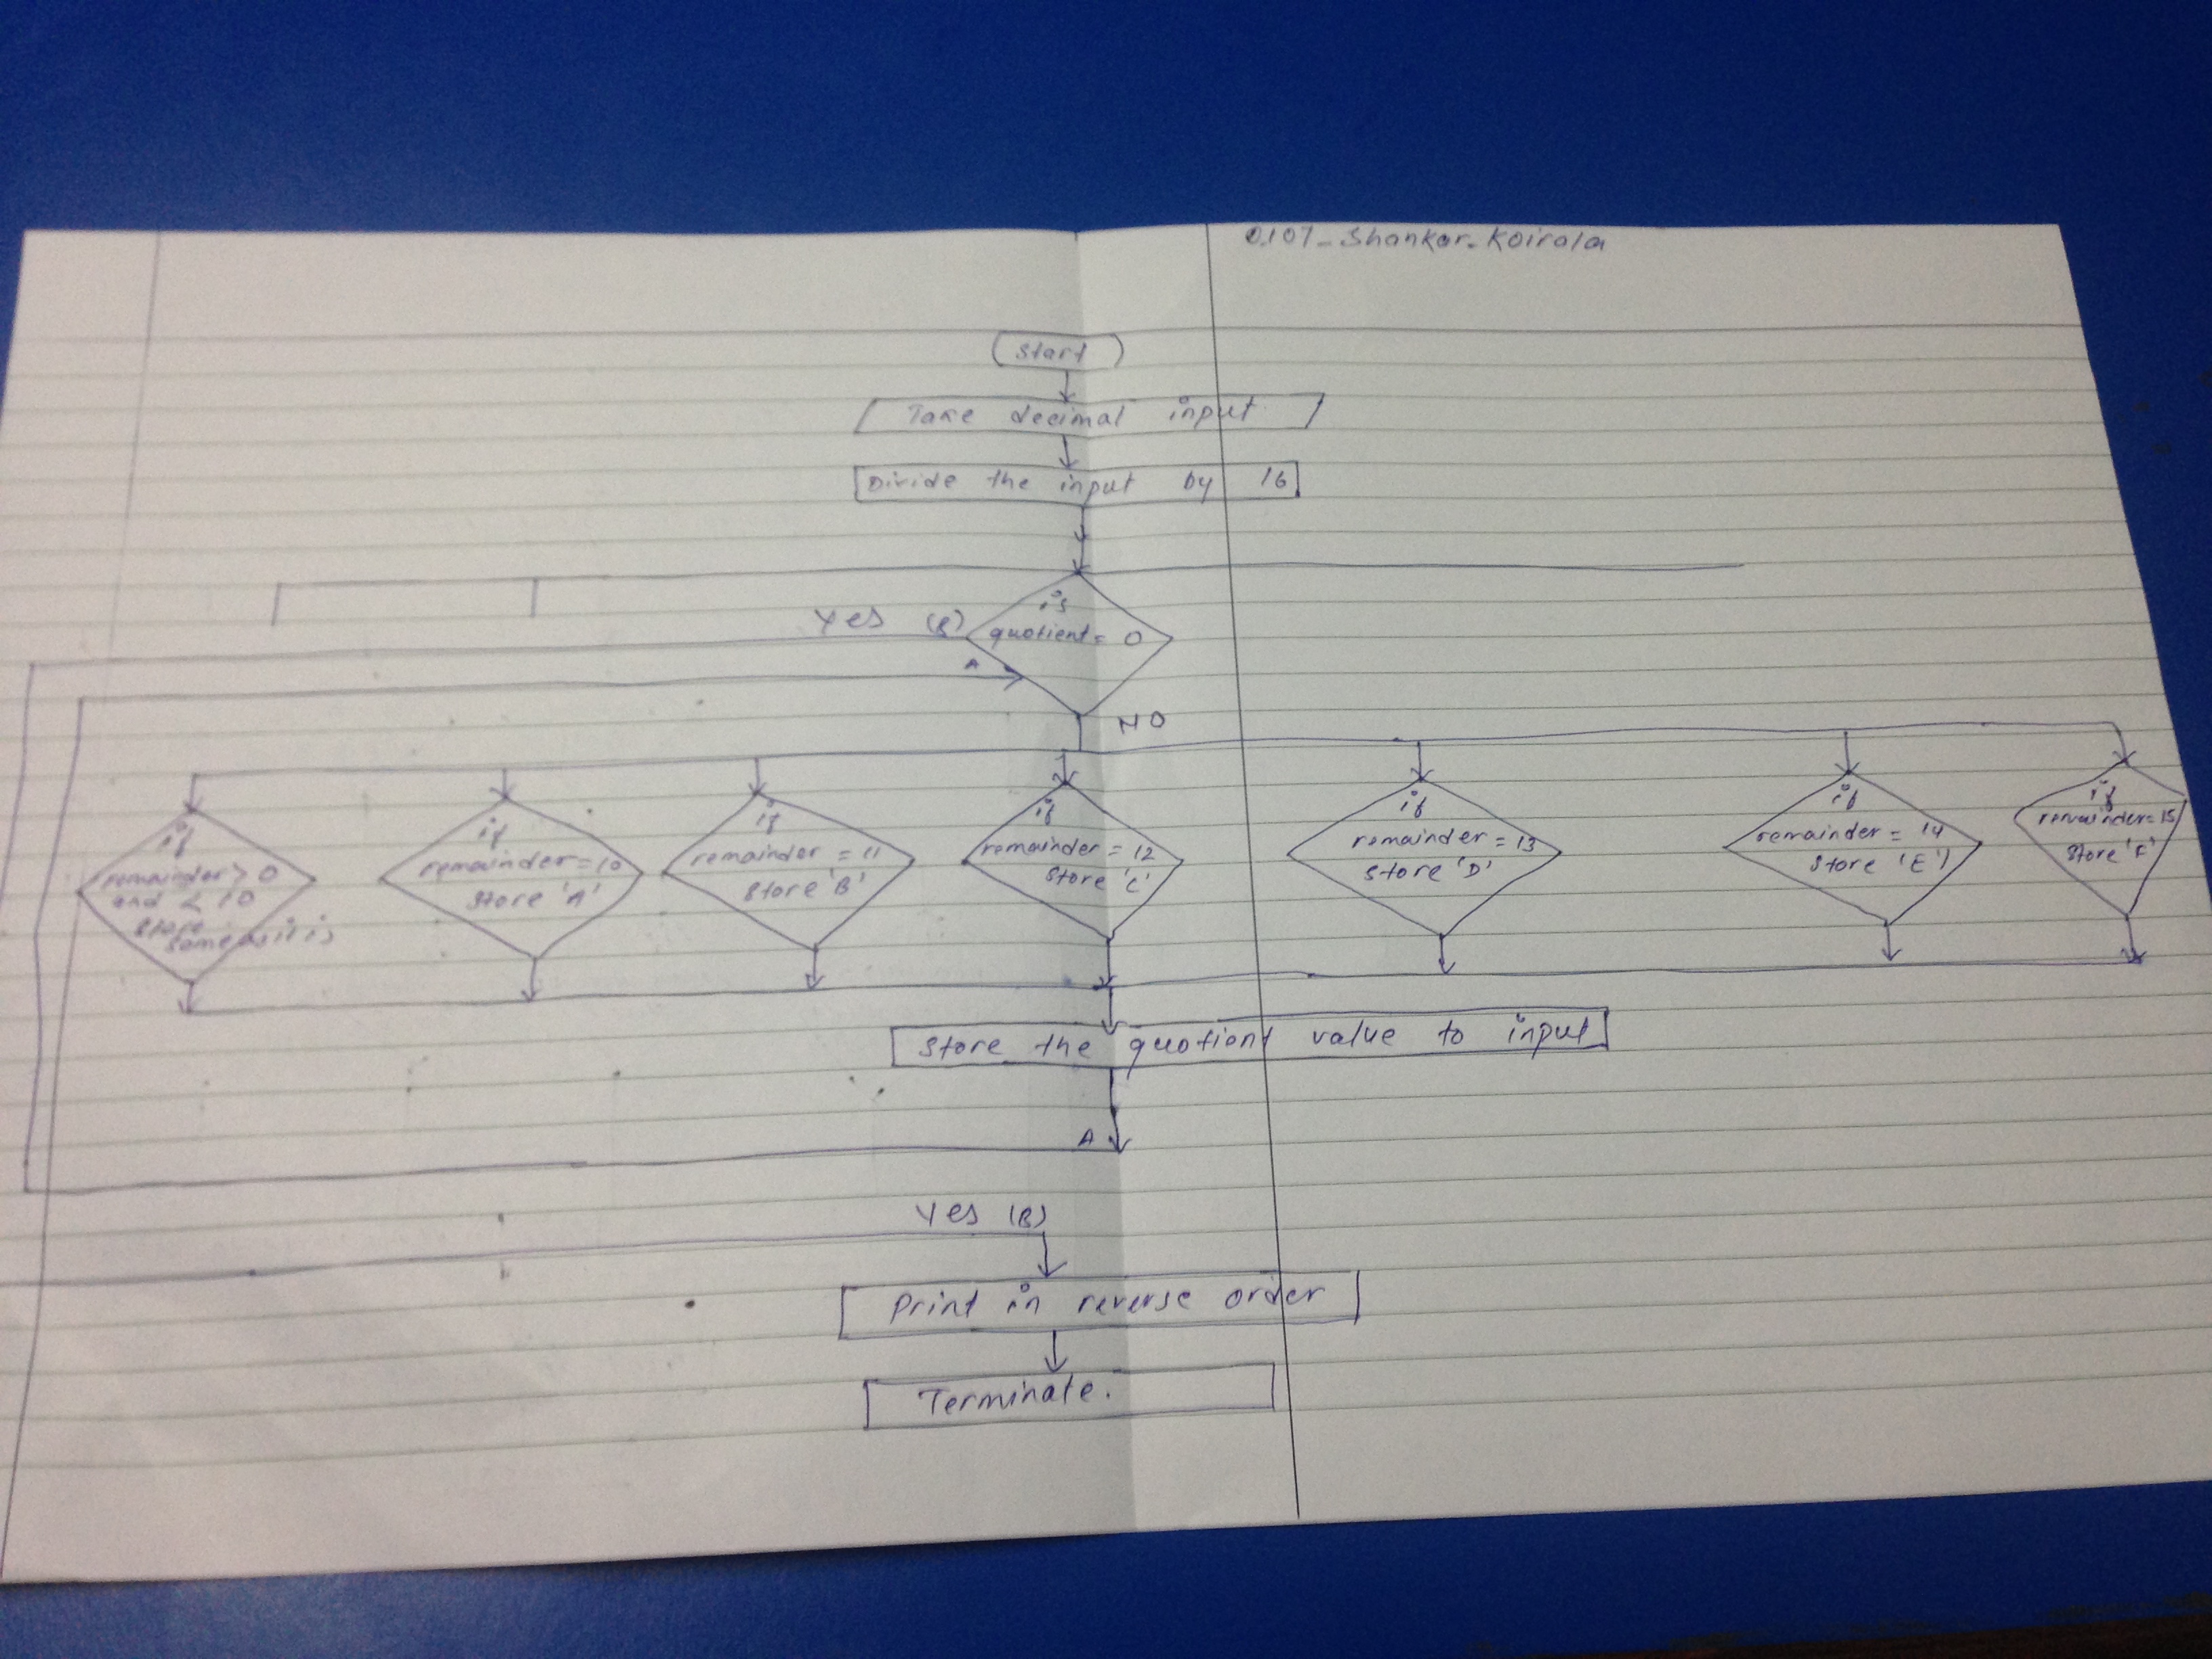 0107_Shankar_Koirala
Start
Take decimal input
Divide the input by 16
is
quotient = 0
A
Yes (B)
NO
if
remainder > 0
and < 10
store
same digits
if
remainder = 10
store 'A'
if
remainder = 11
store 'B'
if
remainder = 12
store 'C'
if
remainder = 13
store 'D'
if
remainder = 14
store 'E'
if
remainder = 15
store 'F'
Store the quotient value to input
A
Yes (B)
Print in reverse order
Terminate.